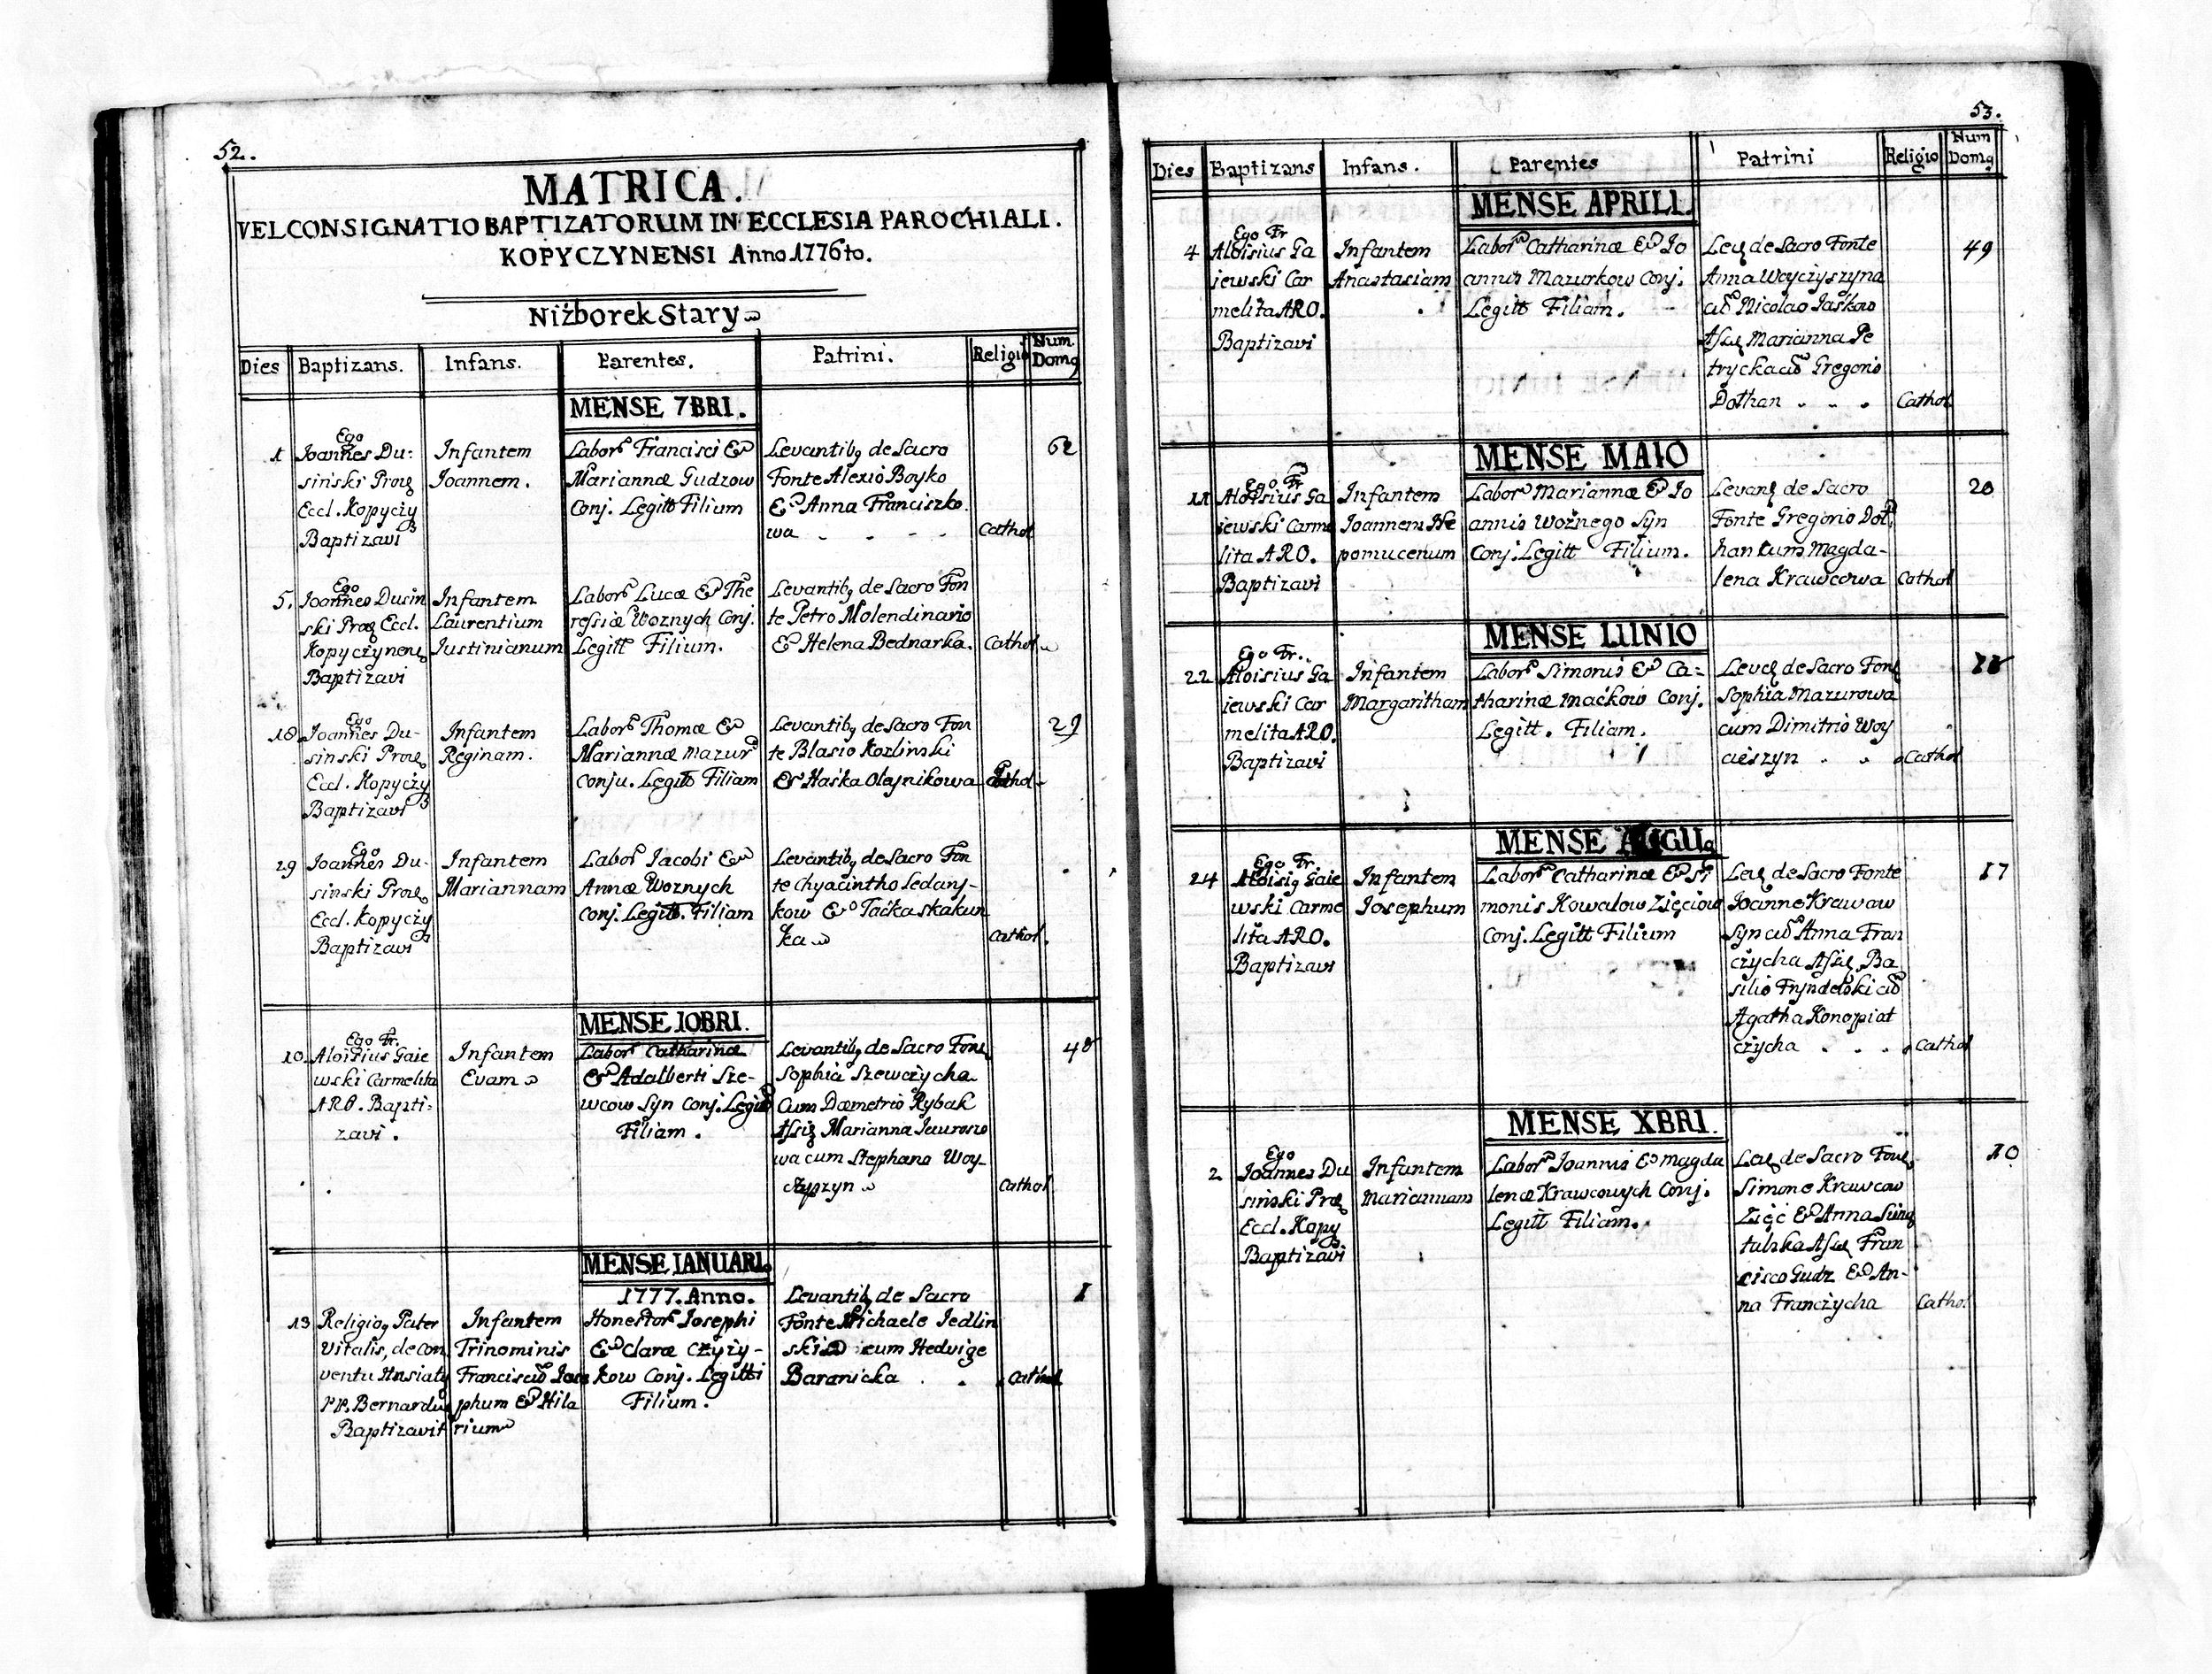 52.
MATRICA.
VEL CONSIGNATIO BAPTIZATORUM IN ECCLESIA PAROCHIALI.
KOPYCZYNENSI Anno 1776to.
Niżborek Stary
Dies Baptizans. Infans. Parentes. Patrini. Religio Num. Domq
MENSE 7BRI.
1
Ego
Joannes Du:
siński Proq
Eccl. Kopyczy
Baptizavi
Infantem
Joannem.
Labor Francisci &
Mariannæ Gudzow
Conj. Legitt Filium
Levantibq de Sacro
Fonte Alexio Boyko
& Anna Franciszko
wa
Cathol
62
5.
Ego
Joannes Dusin
ski Proq Eccl.
Kopyczynens
Baptizavi
Infantem
Laurentium
Justinianum
Labor Lucæ & The
ressiæ Woznych Conj.
Legitt Filium.
Levantibq de Sacro Fon
te Petro Molendinario
& Helena Bednarka.
Cathol
18
Ego
Joannes Du-
sinski Proq
Eccl. Kopyczy
Baptizavi
Infantem
Reginam.
Labor Thomæ &
Mariannæ Mazur
Conju. Legitt Filiam
Levantibq de Sacro Fon
te Blasio Kozlinski
& Haśka Olaynikowa
Cathol
29
29
Ego
Joannes Du-
sinski Proq
Eccl. Kopyczy
Baptizavi
Infantem
Mariannam
Labor Jacobi &
Annæ Woznych
Conj. Legitt. Filiam
Levantibq de Sacro Fon
te Chyacintho Sedary-
kow & Taćka Skakun
ka
Cathol.
MENSE 10BRI.
10.
Ego Fr.
Aloisius Gaie
wski Carmelita
ARO. Bapti:
zavi.
Infantem
Evam
Labor Catharinæ
& Adalberti Sze-
wcow Syn Conj. Legitt
Filiam.
Levantibq de Sacro Fone
Sophia Szewczycha
Cum Dæmetrio Rybak
Assiq Marianna Jawrosze
wa cum Stephano Woy-
Cathol
48
MENSE IANUARI.
1777. Anno.
13
Religioq Pater
Vitalis, de Con
ventu Husiatq
PP. Bernardiq
Baptizavit
Infantem
Trinominis
Franciscu Jose
phum & Hila
rium
Honestor Josephi
& Claræ Czyży-
kow Conj. Legitti
Filium.
Levantibq de Sacro
Fonte Michaele Jedlin
ski cum Hedvige
Baranicka
Cathol
1
53.
Dies Baptizans Infans. Parentes Patrini Religio Num Domq
MENSE APRILI.
4
Ego Fr
Aloisius Ga
jewski Car
melita ARO.
Baptizavi
Infantem
Anastasiam
Labor Catharinæ & Jo
annis Mazurkow Conj.
Legitt Filiam.
Leq de Sacro Fonte
Anna Woyczyszyna
cu Nicolao Jaśkow
Assq Marianna Pe
trycka cu Gregorio
Dothan
Cathol
49
MENSE MAIO
11
Ego Fr
Aloisius Ga
jewski Carme
lita ARO.
Baptizavi
Infantem
Joannem Ne
pomucenum
Labor Mariannæ & Jo
annis Woźnego Syn
Conj. Legitt Filium.
Levanq de Sacro
Fonte Gregorio Dot
han cum Magda-
lena Krawcowa
Cathol
20
MENSE IUNIO
22
Ego Fr.
Aloisius Ga
iewski Car
melita ARO.
Baptizavi
Infantem
Margaritham
Labor Simonis & Ca:
tharinæ Maćkow Conj.
Legitt. Filiam.
Leveq de Sacro Fonq
Sophia Mazurowa
cum Dimitrio Woy
cieszyn
Cathol
MENSE AUGUq
24
Ego Fr
Aloisiq Gaie
wski Carme
lita ARO.
Baptizavi
Infantem
Josephum
Labor Catharinæ & Si
monis Kowalow Zięciow
Conj. Legitt Filium
Leq de Sacro Fonte
Joanne Krawcow
Syn cu Anna Fran
czycha Assq Ba
silio Fryndelski cu
Agatha Konopiat
czycha
Cathol
17
MENSE XBRI.
2
Ego
Joannes Du
siński Præ
Eccl. Kopy
Baptizavi
Infantem
Mariannam
Labor Joannis & Magda
lenæ Krawcowych Conj.
Legitt Filiam.
Leq de Sacro Fonq
Simone Krawcow
Zięć & Anna
Assq Fran
cisco Gudz & An-
na Franczycha
Cathol
10